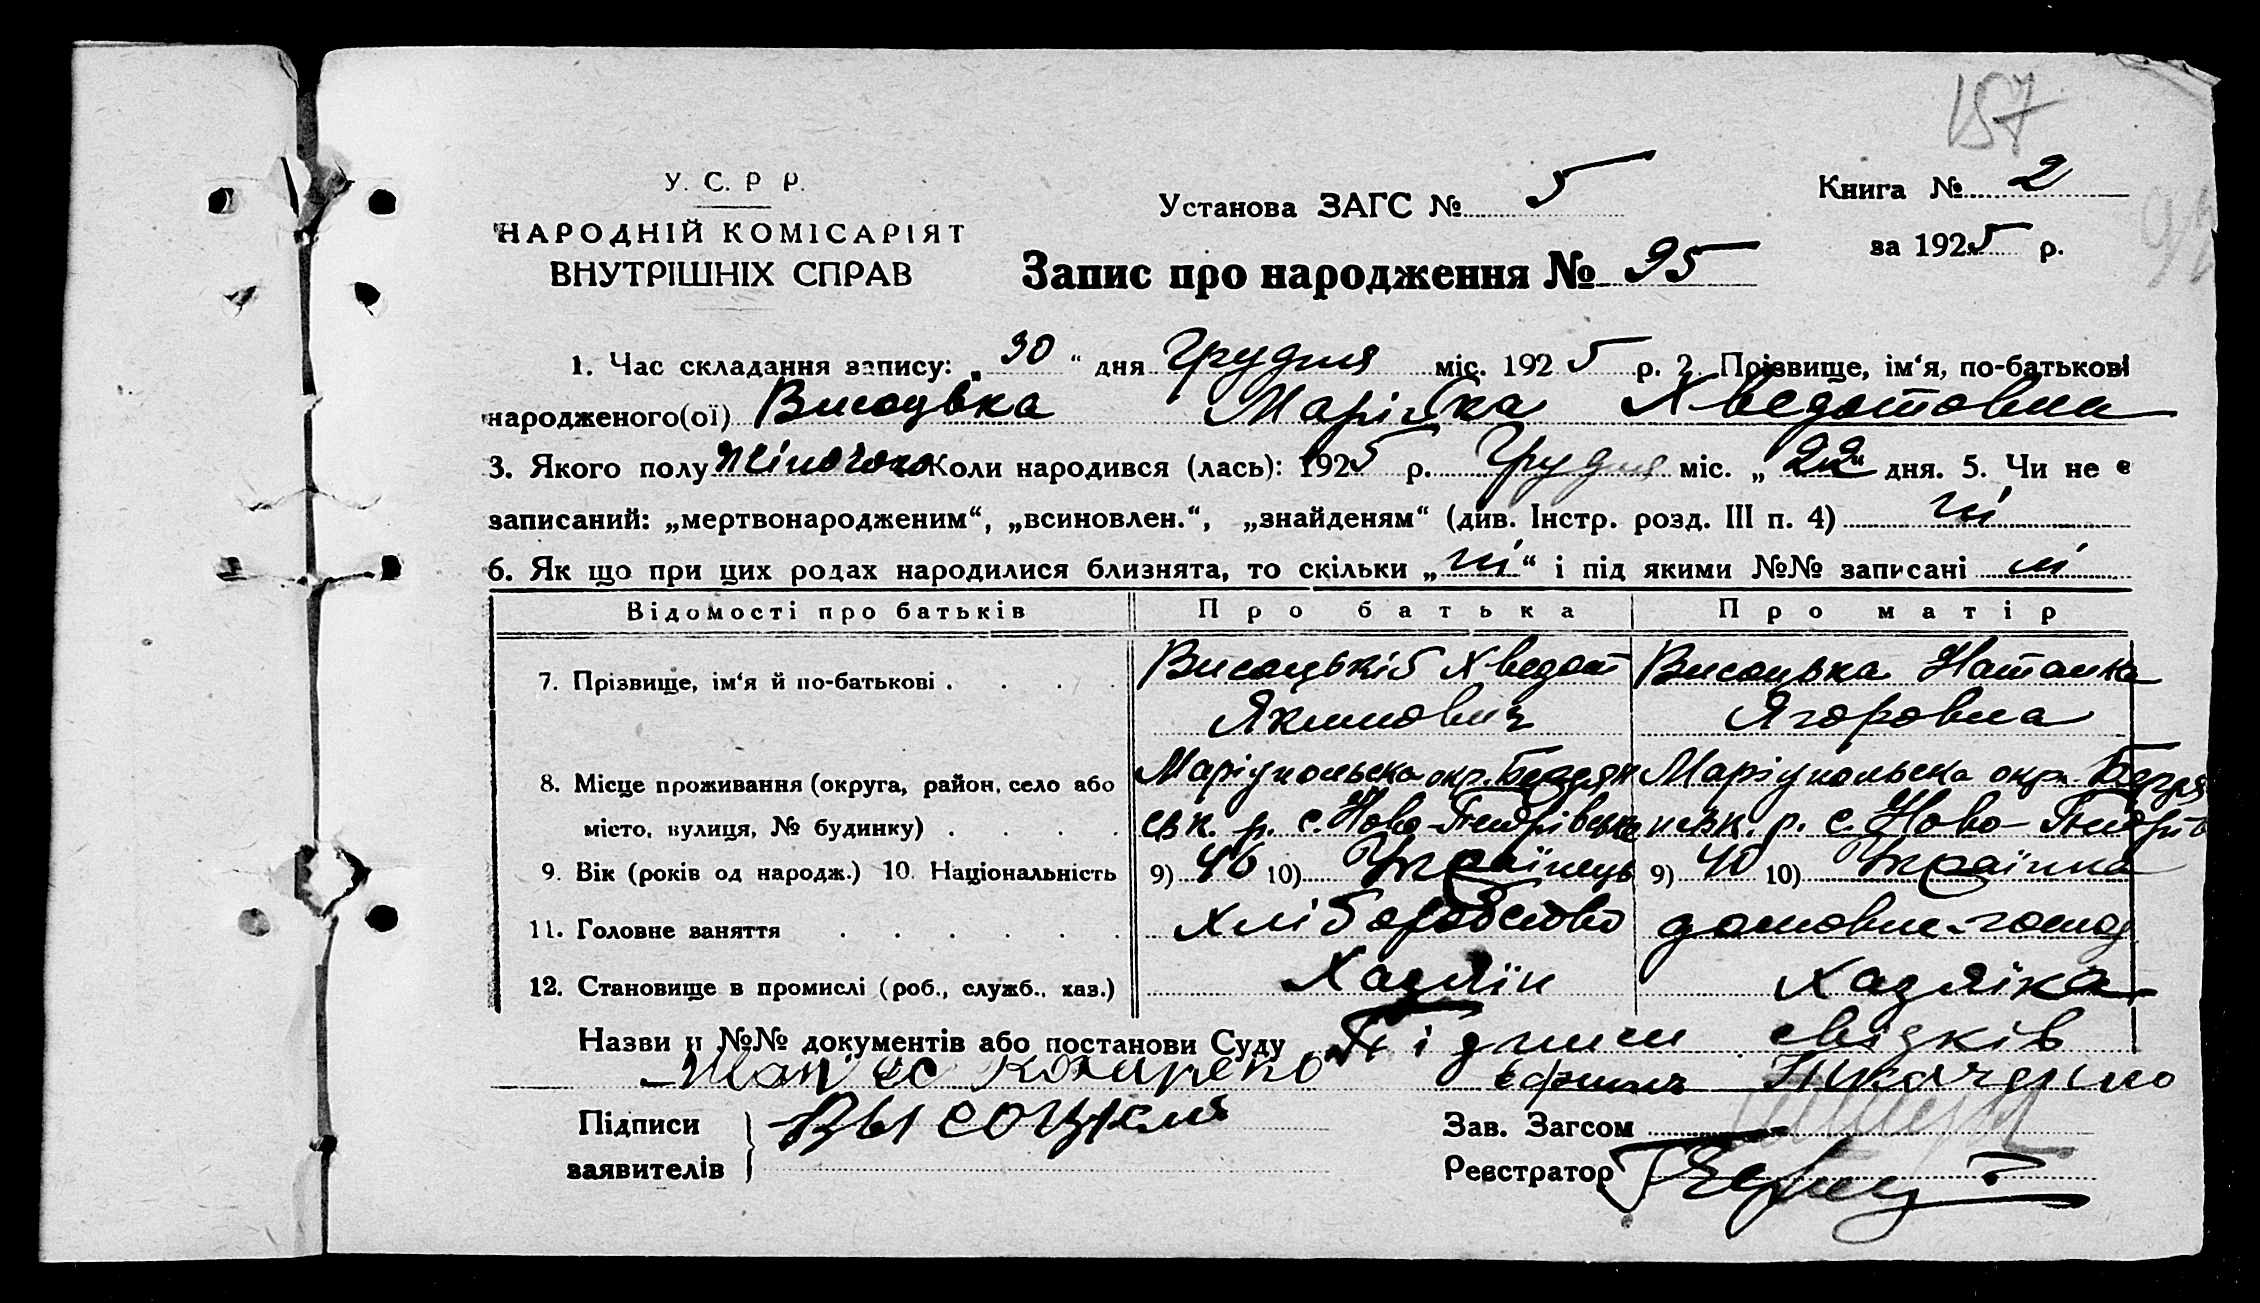 157
У. С. Р Р.
НАРОДНІЙ КОМІСАРІЯТ
ВНУТРІШНІХ СПРАВ
Установа ЗАГС № 5
Книга № 2
за 1925 р.
Запис про народження № 95
1. Час складання запису: „30“ дня Грудня міс. 1925 р. 2. Прізвище, ім‘я, по-батькові
народженого(ої) Висоцька Марійка Хведотовна
3. Якого полу жіночого Коли народився (лась): 1925 р. Грудня міс. „22“ дня. 5. Чи не є
записаний: „мертвонародженим“, „всиновлен.“, „знайденям“ (див. Інстр. розд. III п. 4) ні
6. Як що при цих родах народилися близнята, то скільки „ні“ і під якими №№ записані ні
Відомості про батьків Про батька Про матір
7. Прізвище, ім‘я й по-батькові . . . . Висоцькій Хведот Висоцька Наталка
Якимович Ягоровна
8. Місце проживання (округа, район, село або Маріупольска окр. Бердян Маріупольска окр. Бердя
місто, вулиця, № будинку) . . . . євк. р. с. Ново-Петрівська нєвк. р. с. Ново-Петрів
9. Вік (років од народж.) 10. Національність 9) 46 10) Українець 9) 40 10) Українка
11. Головне заняття . . . . . . Хліборобство домовне-господ
12. Становище в промислі (роб., служб., хаз.) Хазяїн Хазяїка
Назви й №№ документів або постанови Суду Підписи свідків
Підписи
заявителів
Высоцкий
Зав. Загсом
Реєстратор